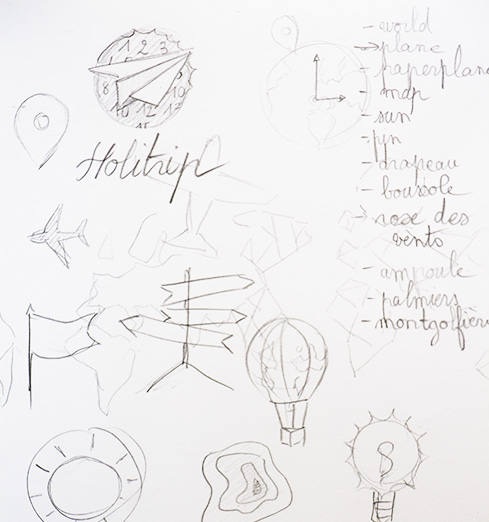 1 2 3
8 10
10 12
12
Holitrip
- world
→ plane
- paperplane
- map
- sun
- pin
- drapeau
- boussole
→ rose des
vents
- ampoule
- palmiers
- montgolfière